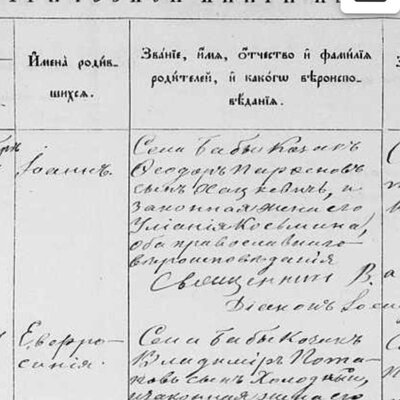 Имена̀ роди́в-
шихся.
Зва́нїе, и́мя, ѻ҆́тчество и҆ фами́лїѧ
роди́телей, и҆ како́гѡ вѣроиспо-
вѣ́данїѧ.
Іоаннъ.
Села Бабы Козакъ
Ѳеодоръ Парѳеновъ
сынъ Хацкевичъ, и
законная жена его
Уліанія Косьмина,
оба православнаго
вѣроисповѣданія
Священникъ В.
Діаконъ
Евфро-
синія.
Села Бабы Козакъ
Владиміръ Пота-
повъ сынъ Холодный,
и законная жена его